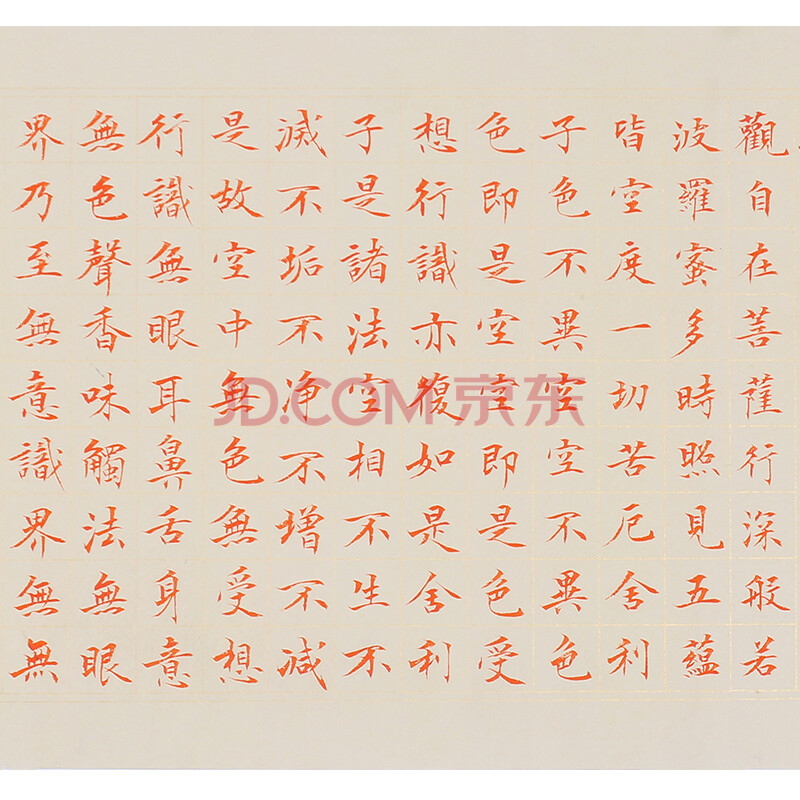 觀自在菩薩行深般若
波羅蜜多時照見五蘊
皆空度一切苦厄舍利
子色不異空空不異色
色即是空空即是色受
想行識亦復如是舍利
子是諸法空相不生不
滅不垢不净不增不減
是故空中無色無受想
行識無眼耳鼻舌身意
無色聲香味觸法無眼
界乃至無意識界無無
JD.COM 京东